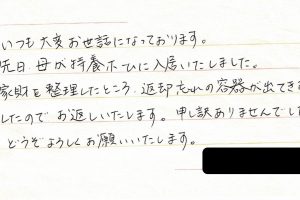 いつも大変お世話になっております。
先日、母が特養ホームに入居いたしました。
家財を整理したところ、返却忘れの容器が出てきま
したのでお返しいたします。申し訳ありませんでした
どうぞよろしくお願いいたします。